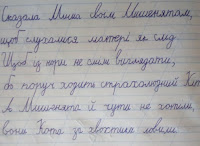 Сказала Миша своїм Мишенятам,
щоб слухалися матері як слід.
Щоб із нори не сміли виглядати,
бо поруч ходить страхолюдний Кіт.
А Мишенята й чути не хотіли,
Вони Кота за хвостик ловили.